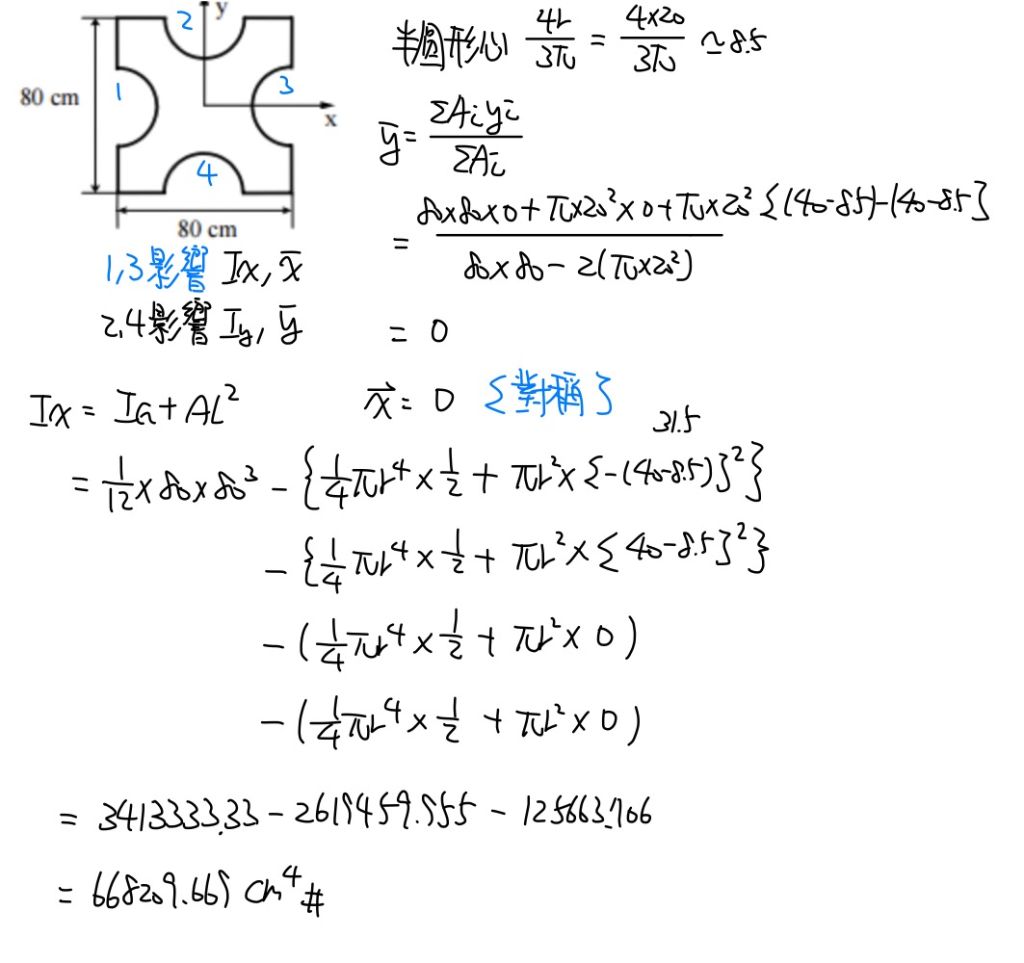 y
2
1
3
80 cm
x
4
80 cm
半圓形心 4r/3π = 4×20/3π ≃ 8.5
ȳ = ΣAiyi/ΣAi
= 80×80×0+π×20²×0+π×20²{(40-8.5)-(40-8.5} / 80×80-2(π×20²)
1,3影響 Ix, x̄
2,4影響 Iy, ȳ
= 0
x̄ = 0 {對稱}
Ix = IG+AL²
31.5
= 1/12×80×80³ - {1/4πr⁴×1/2 + πr²×{-(40-8.5)}²}
- {1/4πr⁴×1/2 + πr²×{40-8.5}²}
- (1/4πr⁴×1/2 + πr²×0)
- (1/4πr⁴×1/2 + πr²×0)
= 3413333.33 - 2619459.955 - 125663.706
= 668209.669 cm⁴#